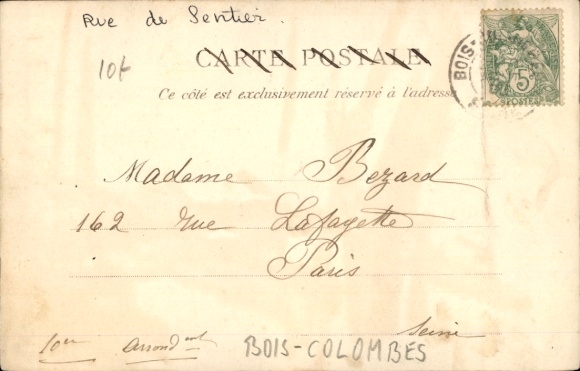 Rue de Sentier.
CARTE POSTALE
10f
Ce côté est exclusivement réservé à l'adresse
BOIS-
5
POSTES
Madame Bezard
162 rue Lafayette
Paris
Seine
10er arrondmt
BOIS-COLOMBES